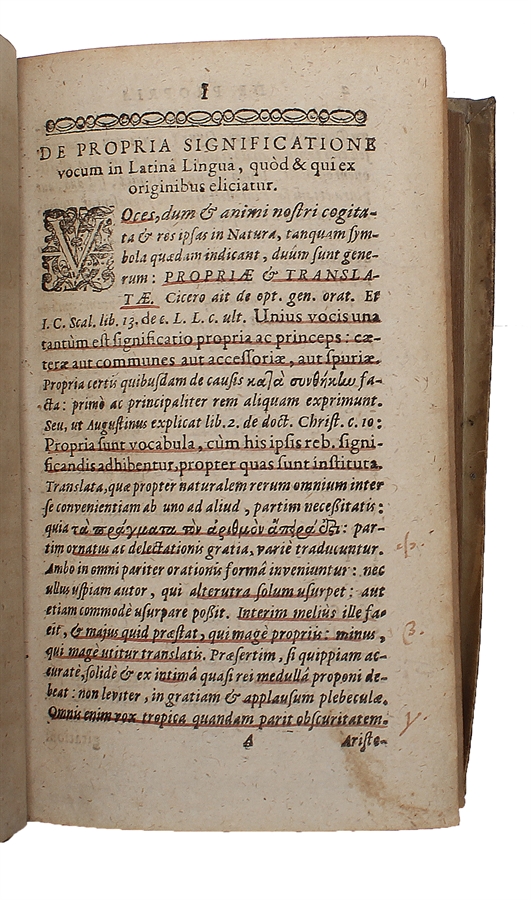 I
DE PROPRIA SIGNIFICATIONE
vocum in Latinâ Linguâ, quòd & qui ex
originibus eliciatur.
VOces, dum & animi nostri cogita-
ta & res ipsas in Naturâ, tanquam sym-
bola quædam indicant, duûm sunt gene-
rum: PROPRIÆ & TRANSLA-
TÆ. Cicero ait de opt. gen. orat. Et
I. C. Scal. lib. 13. de c. L. L. c. ult. Unius vocis una
tantùm est significatio propria ac princeps: cæ-
teræ aut communes aut accessoriæ, aut spuriæ.
Propria certis quibusdam de causis καλὰ συνθήκlω fa-
cta: primò ac principaliter rem aliquam exprimunt.
Seu, ut Augustinus explicat lib. 2. de doct. Christ. c. 10:
Propria sunt vocabula, cùm his ipsis reb. signi-
ficandis adhibentur, propter quas sunt instituta.
Translata, quæ propter naturalem rerum omnium inter
se convenientiam ab uno ad aliud, partim necessitatis:
quia τὰ πράγματα τὸν ἀριθμὸν: par-
tim ornatus ac delectationis gratiâ, variè traducuntur.
Ambo in omni pariter orationis formâ inveniuntur: nec
ullus uspiam autor, qui alterutra solum usurpet: aut
etiam commodè usurpare possit. Interim meliùs ille fa-
cit, & majus quid præstat, qui magè propriis: minus,
qui magè utitur translatis. Præsertim, si quippiam ac-
curatè, solidè & ex intimâ quasi rei medullâ proponi de-
beat: non leviter, in gratiam & applausum plebeculæ.
Omnis enim vox tropica quandam parit obscuritatem.
A Aristo-
β.
γ